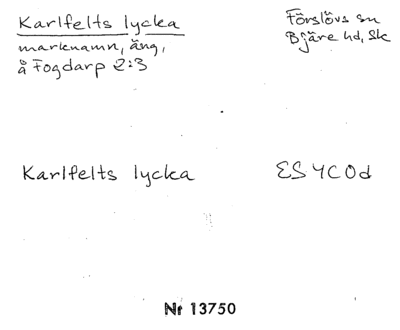 Karlfelts lycka
marknamn, äng,
å Fogdarp 2:3
Förslövs sn
Bjäre hd, Sk
Karlfelts lycka
ES 4C0d
Nr 13750